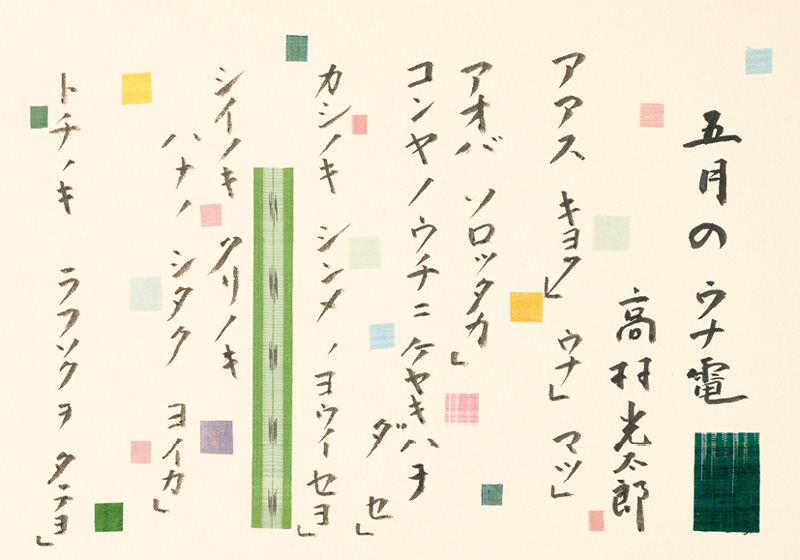 五月のウナ電
高村光太郎
アアス キヨク」 ウナ」 マツ」
アオバ ソロツタカ」
コンヤノウチニケヤキハヲ
ダ セ」
カシノキ シンメ ノヨウイーセヨ」
シイノキ クリノキ
ハナノ シタク ヨイカ」
トチノキ ラフソクヲ タテヨ」